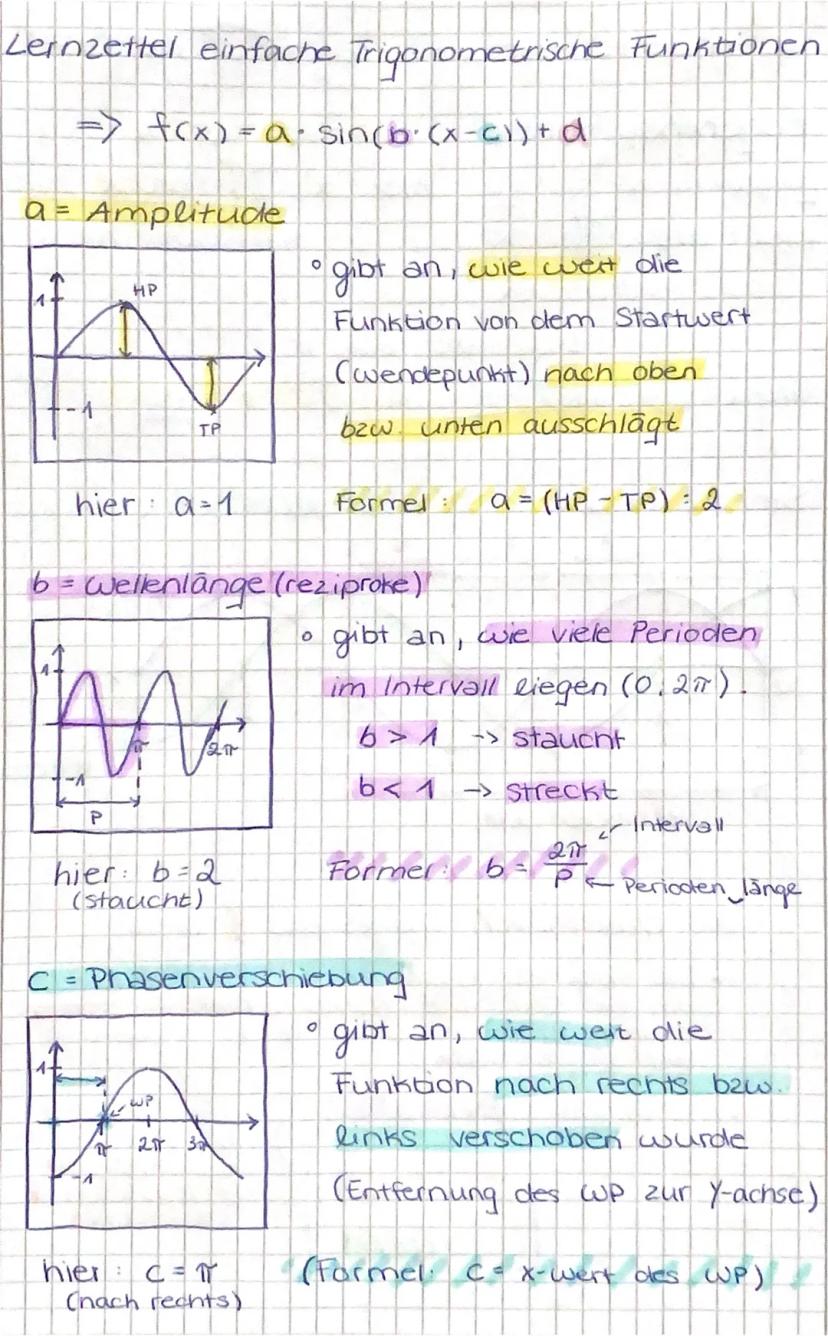 Lernzettel einfache Trigonometrische Funktionen
=> f(x) = a · sin(b · (x-c)) + d
a = Amplitude
1
HP
-1
TP
° gibt an, wie weit die
Funktion von dem Startwert
(Wendepunkt) nach oben
bzw. unten ausschlägt
hier: a=1
Formel: a = (HP - TP) : 2
b = Wellenlänge (reziproke)
1
π
2π
-1
P
° gibt an, wie viele Perioden
im Intervall liegen (0, 2π).
b > 1 -> staucht
b < 1 -> streckt
hier: b=2
(staucht)
Formel: b = 2π/P
Intervall
Perioden länge
c = Phasenverschiebung
1
WP
π 2π 3π
-1
° gibt an, wie weit die
Funktion nach rechts bzw.
links verschoben wurde
(Entfernung des WP zur Y-achse)
hier: c = π
(nach rechts)
(Formel: c = x-wert des WP)